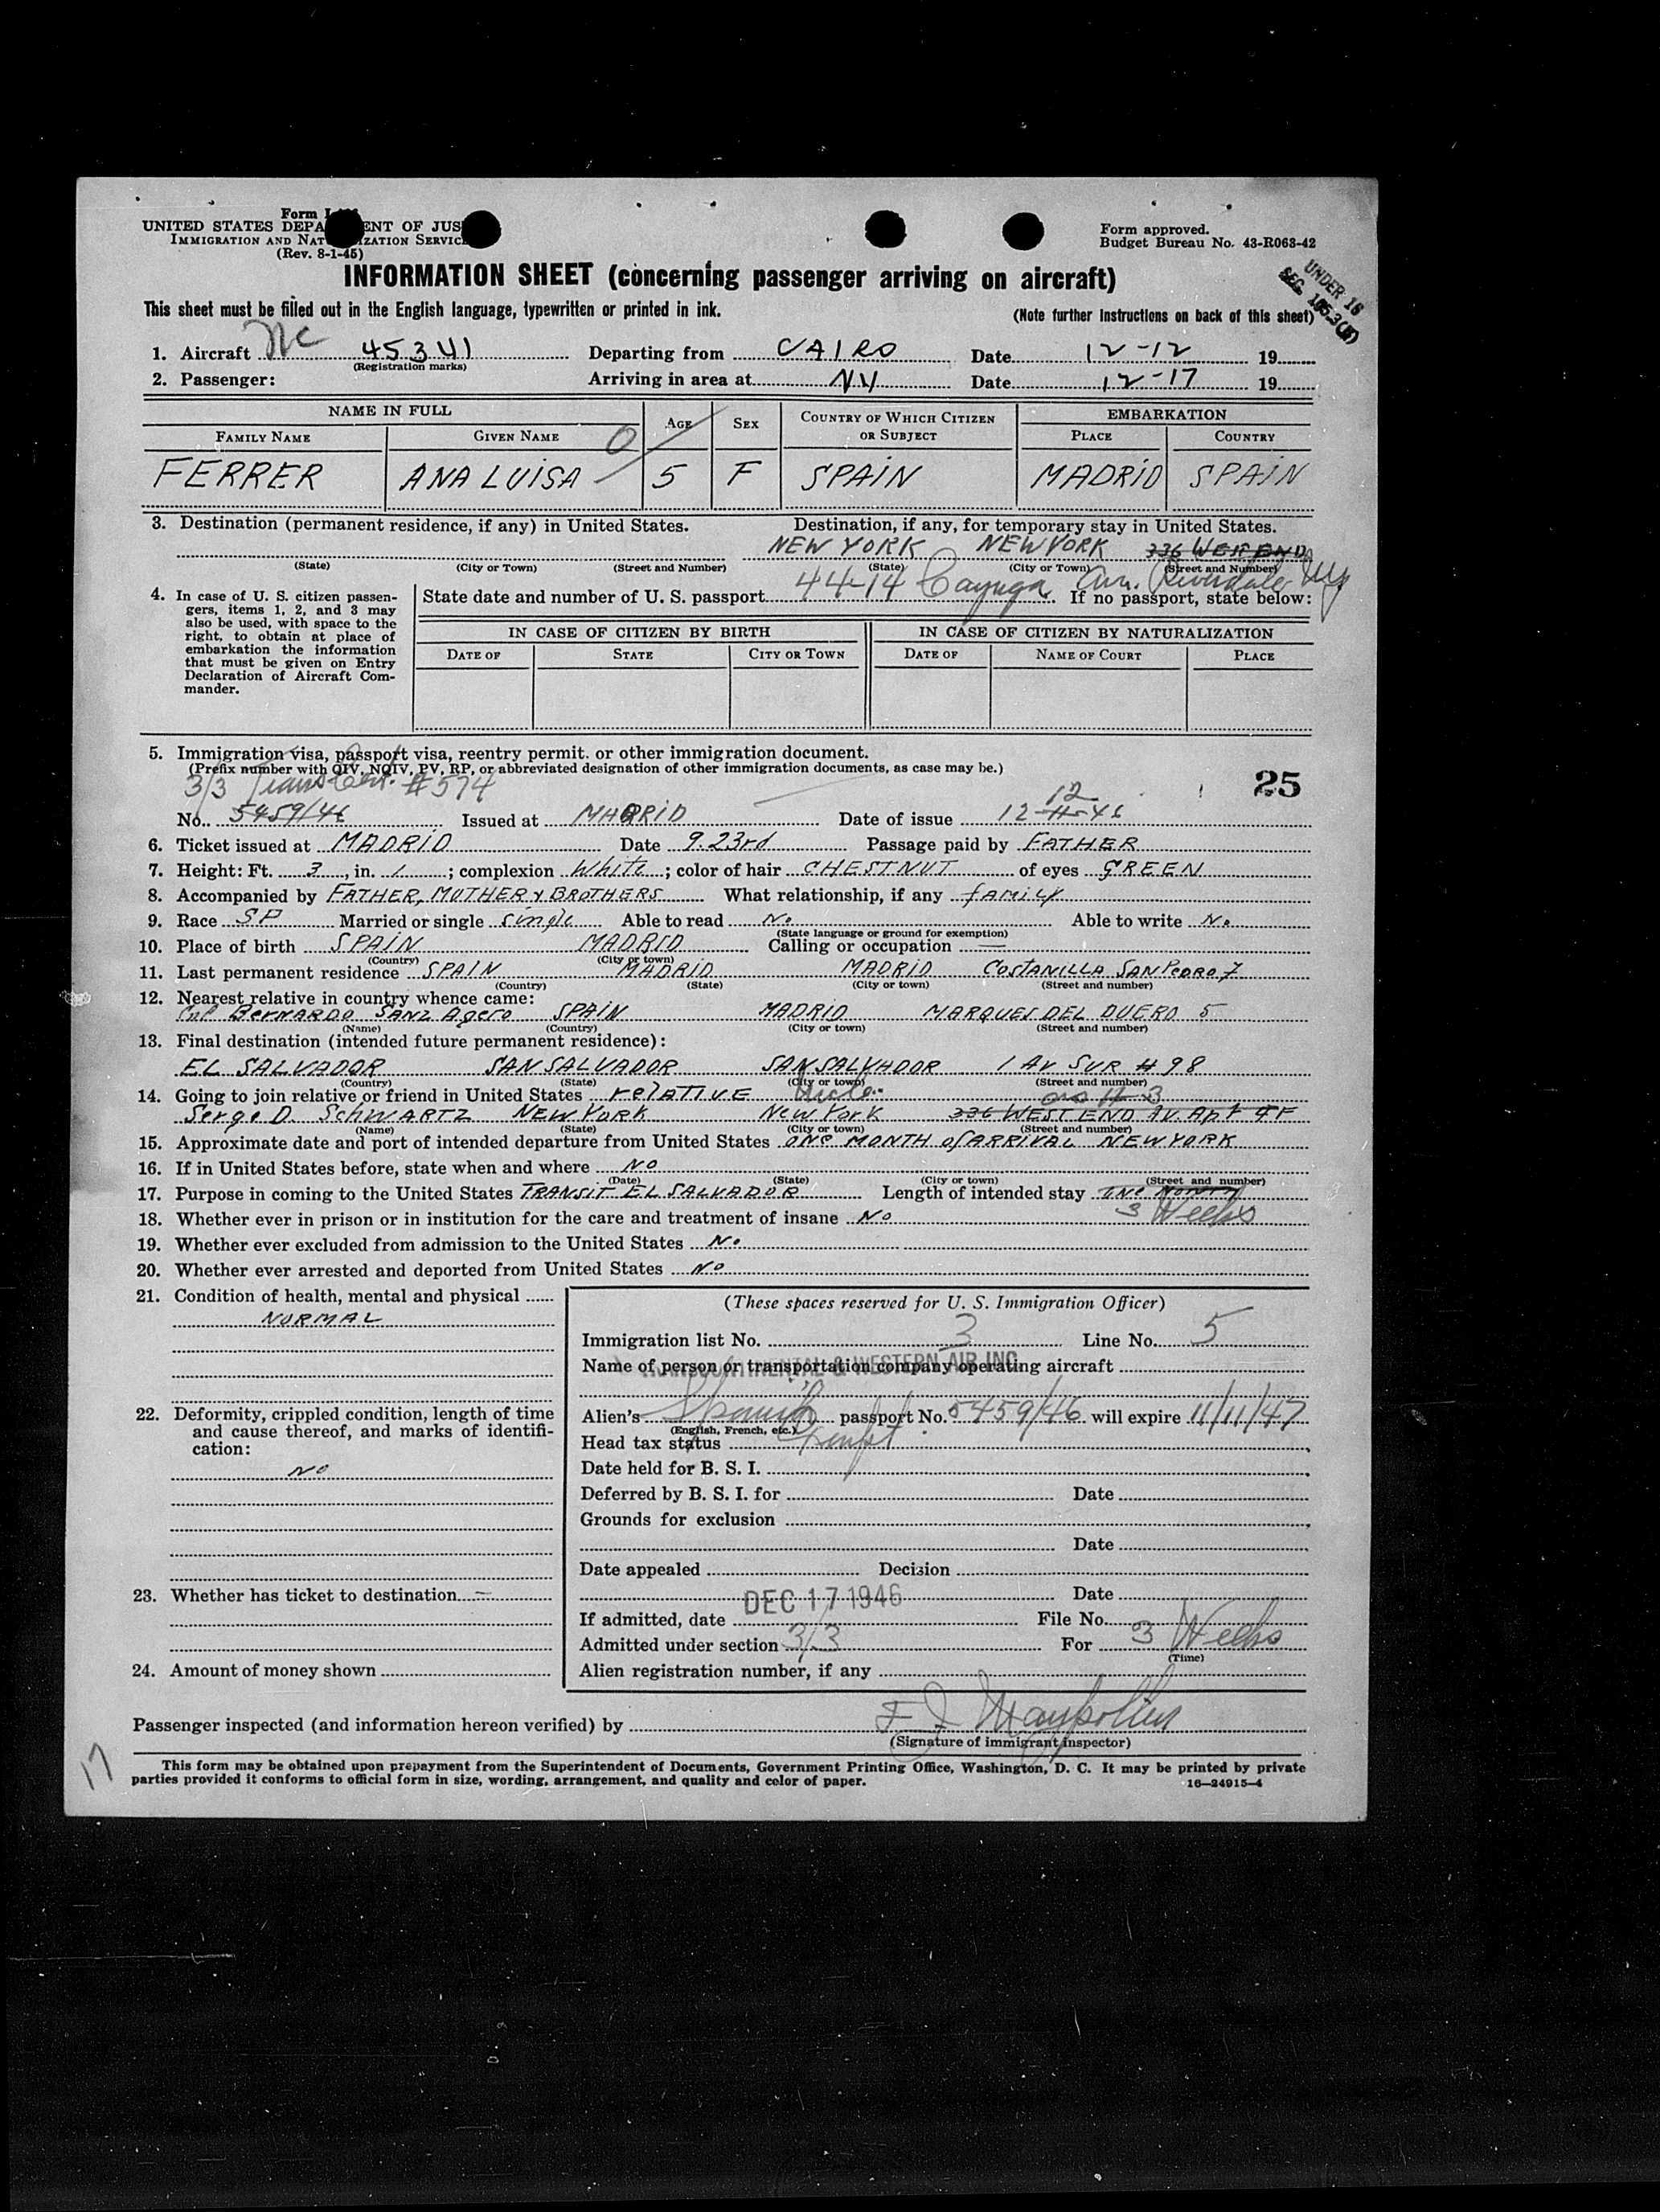 Form I-
UNITED STATES DEPA ENT OF JUS
IMMIGRATION AND NAT IZATION SERVIC
(Rev. 8-1-45)
Form approved.
Budget Bureau No. 43-R063-42
UNDER 16
SEC.
INFORMATION SHEET (concerning passenger arriving on aircraft)
This sheet must be filled out in the English language, typewritten or printed in ink.
(Note further instructions on back of this sheet)
1. Aircraft NC 45341 Departing from CAIRO Date 12-12 19
(Registration marks)
2. Passenger: Arriving in area at NY Date 12-17 19
NAME IN FULL AGE SEX COUNTRY OF WHICH CITIZEN OR SUBJECT EMBARKATION
FAMILY NAME GIVEN NAME PLACE COUNTRY
0
FERRER ANA LUISA 5 F SPAIN MADRID SPAIN
3. Destination (permanent residence, if any) in United States. Destination, if any, for temporary stay in United States.
NEW YORK NEW YORK 336 WEST END
(State) (City or Town) (Street and Number) (State) (City or Town) (Street and Number)
44-14 Cayuga Ave. Riverdale NY
4. In case of U. S. citizen passengers, items 1, 2, and 3 may also be used, with space to the right, to obtain at place of embarkation the information that must be given on Entry Declaration of Aircraft Commander.
State date and number of U. S. passport If no passport, state below:
IN CASE OF CITIZEN BY BIRTH IN CASE OF CITIZEN BY NATURALIZATION
DATE OF STATE CITY OR TOWN DATE OF NAME OF COURT PLACE
5. Immigration visa, passport visa, reentry permit. or other immigration document.
(Prefix number with QIV, NQIV, PV, RP, or abbreviated designation of other immigration documents, as case may be.)
3/3 Trans Cert. #574
25
12
No. 5459/46 Issued at MADRID Date of issue 12-11-46
6. Ticket issued at MADRID Date 9.23rd Passage paid by FATHER
7. Height: Ft. 3, in. 1; complexion White; color of hair CHESTNUT of eyes GREEN
8. Accompanied by FATHER, MOTHER Y BROTHERS What relationship, if any family
9. Race SP Married or single single Able to read No Able to write No
(State language or ground for exemption)
10. Place of birth SPAIN MADRID Calling or occupation —
(Country) (City or town)
11. Last permanent residence SPAIN MADRID MADRID COSTANILLA SAN PEDRO 7
(Country) (State) (City or town) (Street and number)
12. Nearest relative in country whence came:
BERNARDO SANZ Agero SPAIN MADRID MARQUES DEL DUERO 5
(Name) (Country) (City or town) (Street and number)
13. Final destination (intended future permanent residence):
EL SALVADOR SAN SALVADOR SAN SALVADOR 1 AV SUR # 98
(Country) (State) (City or town) (Street and number)
14. Going to join relative or friend in United States relative Uncle: as # 3
Serge D. SCHWARTZ NEW YORK New York 336 WEST END AV. Apt 4F
(Name) (State) (City or town) (Street and number)
15. Approximate date and port of intended departure from United States one MONTH of ARRIVAL NEW YORK
16. If in United States before, state when and where NO
(Date) (State) (City or town) (Street and number)
17. Purpose in coming to the United States TRANSIT EL SALVADOR Length of intended stay one month
3 Weeks
18. Whether ever in prison or in institution for the care and treatment of insane No
19. Whether ever excluded from admission to the United States No
20. Whether ever arrested and deported from United States No
21. Condition of health, mental and physical
NORMAL
22. Deformity, crippled condition, length of time and cause thereof, and marks of identification:
NO
23. Whether has ticket to destination —
24. Amount of money shown
(These spaces reserved for U. S. Immigration Officer)
Immigration list No. 3 Line No. 5
Name of person or transportation company operating aircraft
TRANSCONTINENTAL & WESTERN AIR INC.
Alien's Spanish passport No. 5459/46 will expire 11/11/47
(English, French, etc.)
Head tax status Exempt
Date held for B. S. I.
Deferred by B. S. I. for Date
Grounds for exclusion
Date
Date appealed Decision
Date
DEC 17 1946
If admitted, date File No.
Admitted under section 3/3 For 3 Weeks
(Time)
Alien registration number, if any
Passenger inspected (and information hereon verified) by
(Signature of immigrant inspector)
17
This form may be obtained upon prepayment from the Superintendent of Documents, Government Printing Office, Washington, D. C. It may be printed by private
parties provided it conforms to official form in size, wording, arrangement, and quality and color of paper.
16—24915-4